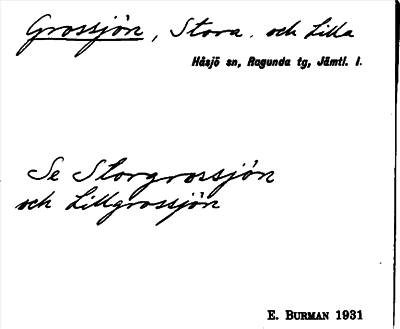 Grossjön, Stora och Lilla
Håsjö sn, Ragunda tg, Jämtl. l.
Se Storgrossjön
och Lillgrossjön
E. BURMAN 1931